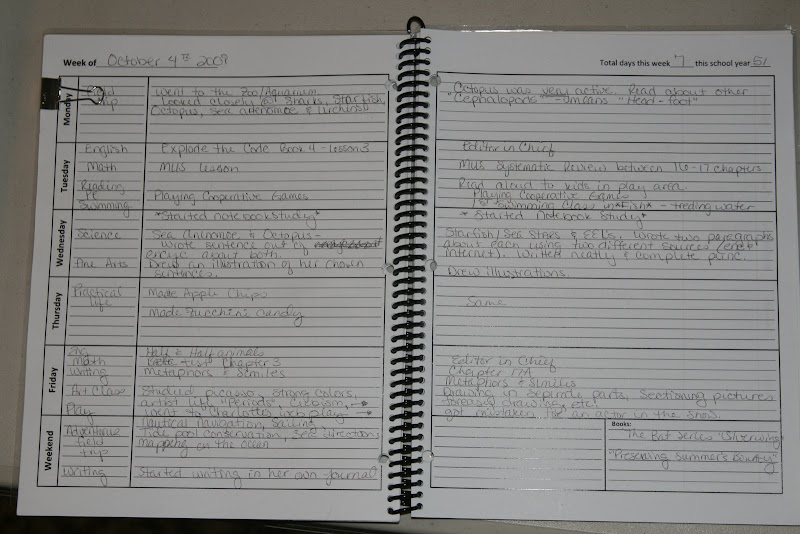 Week of October 4th 2009
Monday
Field trip
went to the Zoo/Aquarium.
Looked closely @ Sharks, Starfish,
Octopus, Sea & Urchins
Tuesday
English Explode the Code Book 4 - lesson 3
Math MUS Lesson
Reading
PE Playing Cooperative Games
Swimming
*Started notebook study*
Wednesday
Science Sea & Octopus -
wrote sentence out of
encyc about both.
Fine Arts Drew an illustration of her chosen
sentences.
Thursday
Practical Made Apple Chips
life
Made Zucchini Candy
Friday
Eng Half & Half animals
Math test Chapter 3
Writing Metaphors & Similes
Art Class Studied picasso, strong colors,
artist life "Periods", Cubism,
Play went to Charlotte's web play
Weekend
nautical navigation, sailing,
Adventure Tide pool conservation, sea
field mapping on the ocean
trip
Writing Started writing in her own Journal
Total days this week 7 this school year 51
"Octopus was very active. Read about other
"Cephaloports" - means "Head-foot"
Editor in Chief
MUS Systematic Review between 16-17 chapters
Read aloud to kids in play area
Playing Cooperative Games
1st Swimming Class in *Fish* - treding water
* Started Notebook Study *
Starfish/Sea Stars & EEL's. Wrote two paragraphs
about each using two different sources (
internet). Written neatly & complete punc.
Drew illustrations.
Same
Editor in Chief
Chapter 17A
Metaphors & Similes
Drawing in Seperate parts, Sectioning pictures
drawing, etc!
got mistaken for an actor in the show.
Books:
The Bat Series "Silverwing"
"Preserving Summer's Bounty"